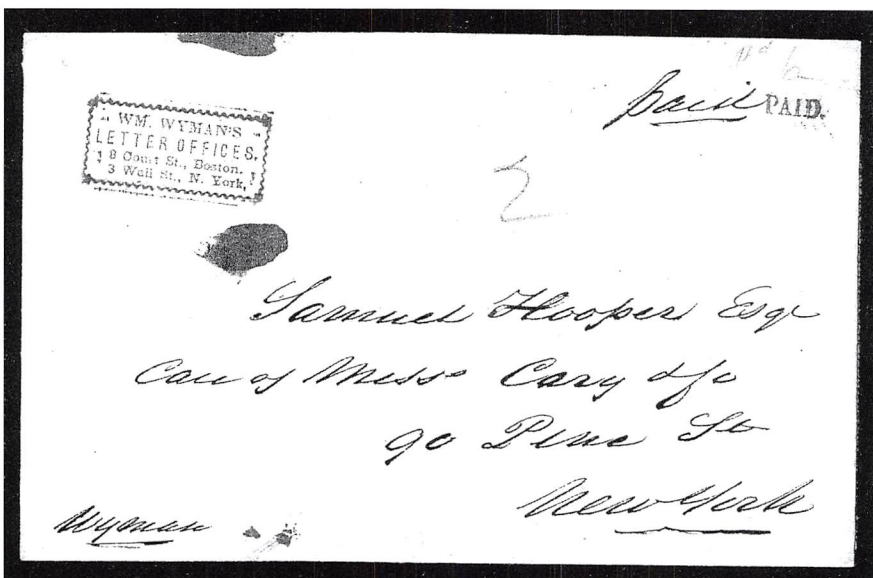 WM. WYMAN'S
LETTER OFFICES,
8 Court St., Boston,
3 Wall St., N. York,
Paid PAID.
2
Samuel Hooper Esqr
Care of Messrs Cary & Co
90 Pine St
New York
Wyman